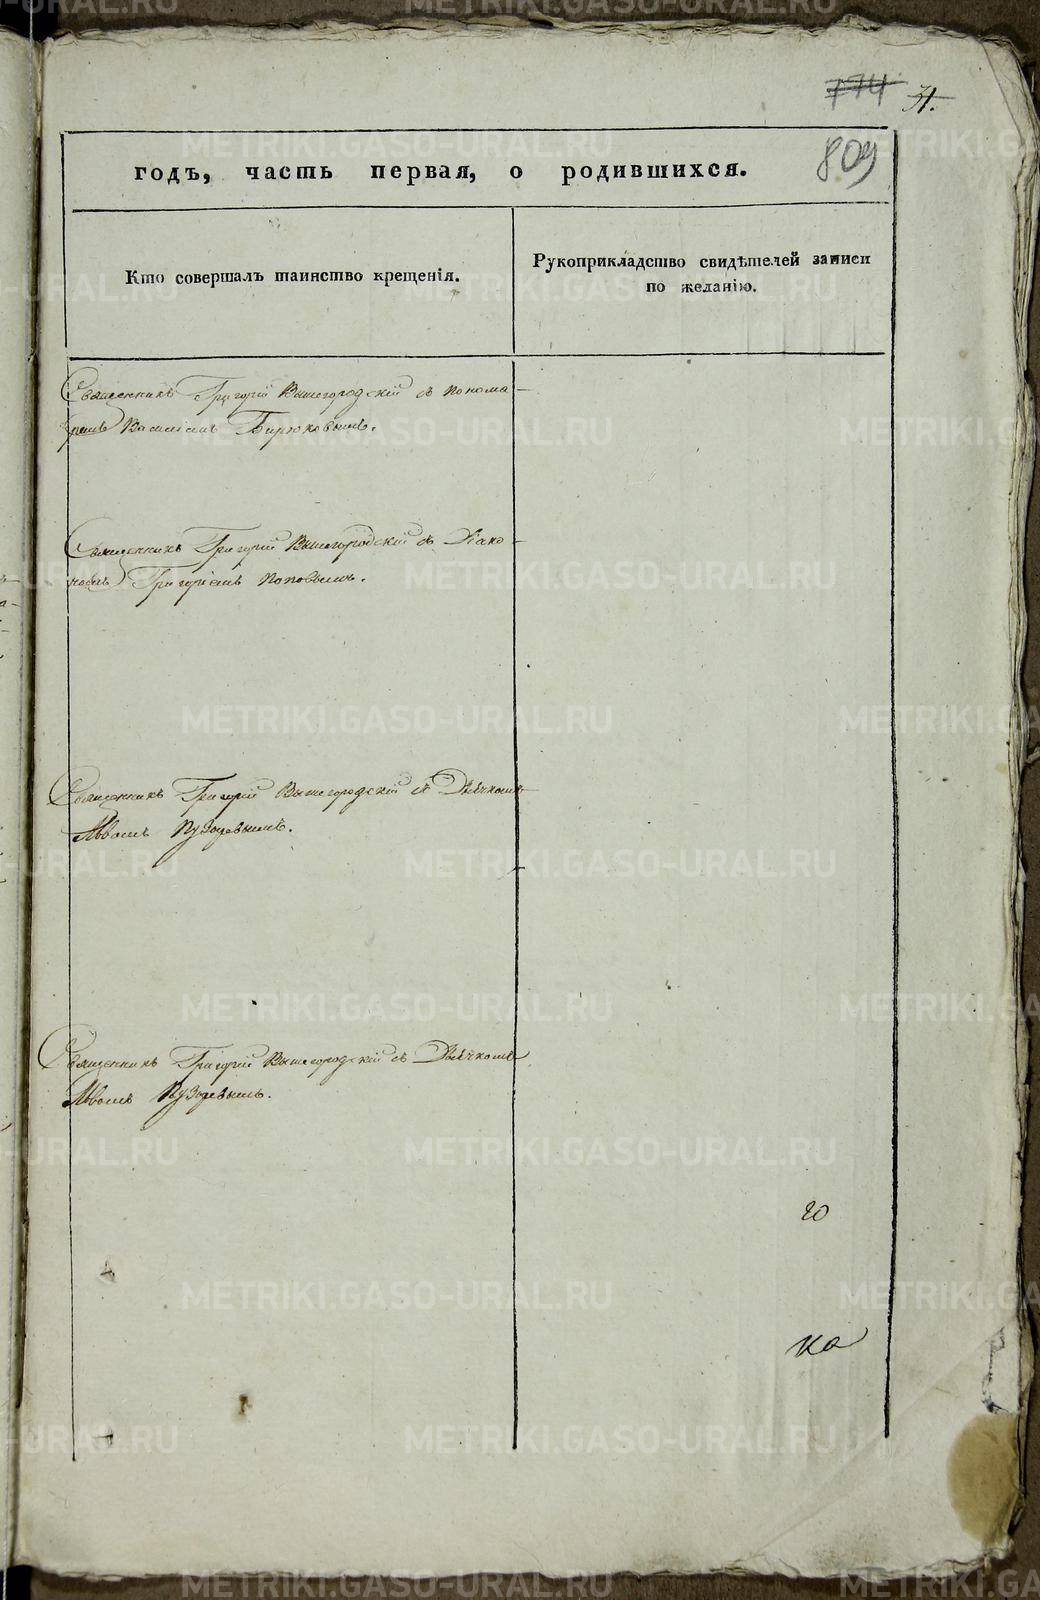 774 31.
809
годъ, часть первая, о родившихся.
Кто совершалъ таинство крещенія.
Рукоприкладство свидѣтелей записи
по желанію.
Священникъ Григорій Вышегородскій съ понома-
ремъ Василіемъ Бирюковымъ.
Священникъ Григорій Вышегородскій съ Діако-
номъ Григоріемъ Поповымъ.
Священникъ Григорій Вышегородскій съ Дьячкомъ
Львомъ Пузыревымъ.
Священникъ Григорій Вышегородскій съ Дьячкомъ
Львомъ Пузыревымъ.
20
METRIKI.GASO-URAL.RU